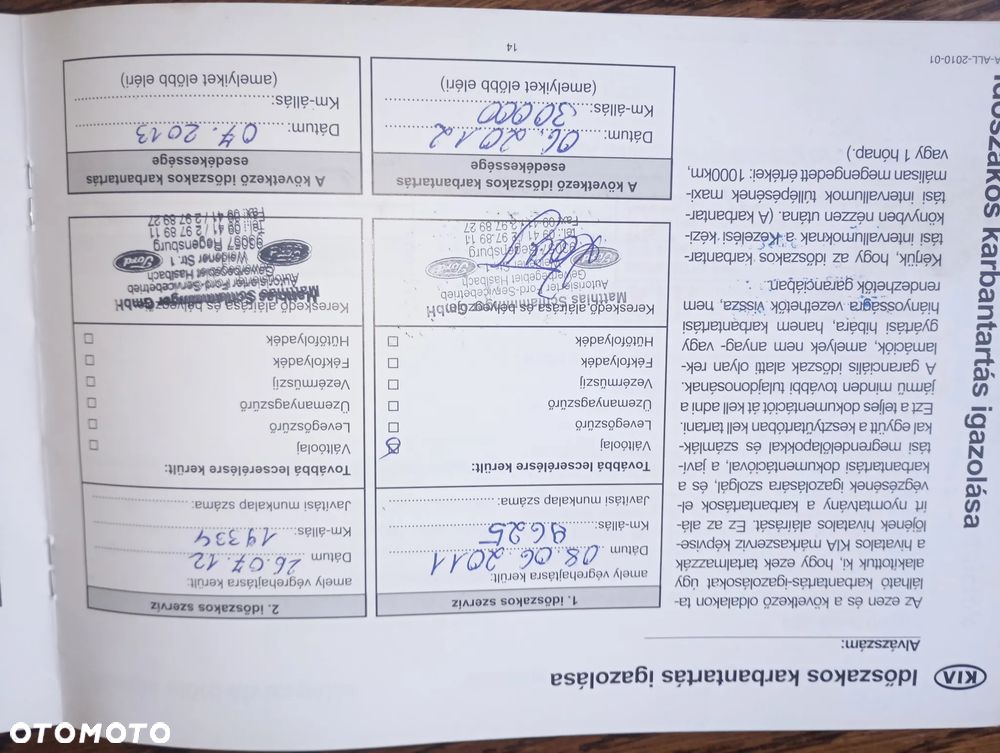 KIA Időszakos karbantartás igazolása
Alvázszám:
Az ezen és a következő oldalakon ta-
lálható karbantartás-igazolásokat úgy
alakítottuk ki, hogy ezek tartalmazzák
a hivatalos KIA márkaszerviz képvise-
lőjének hivatalos aláírását. Ez az alá-
írt nyomtatvány a karbantartások el-
végzésének igazolására szolgál, és a
karbantartási dokumentációval, a javí-
tási megrendelőlapokkal és számlák-
kal együtt a kesztyűtartóban kell tartani.
Ezt a teljes dokumentációt át kell adni a
jármű minden további tulajdonosának.
A garanciális időszak alatti olyan rek-
lamációk, amelyek nem anyag- vagy
gyártási hibára, hanem karbantartási
hiányosságra vezethetők vissza, nem
rendezhetők garanciában.
Kérjük, hogy az időszakos karbantar-
tási intervallumoknak a kezelési kézi-
könyvben nézzen utána. (A karbantar-
tási intervallumok túllépésének maxi-
málisan megengedett értékei: 1000km,
vagy 1 hónap.)
1. időszakos szerviz
amely végrehajtásra került:
Dátum 08.06.2011
Km-állás: 9625
Javítási munkalap száma:
Továbbá lecserélésre került:
Váltóolaj
Levegőszűrő
Üzemanyagszűrő
Vezérműszíj
Fékfolyadék
Hűtőfolyadék
Kereskedő aláírása és bélyegzője
Matthias Schlamminger GmbH
Autorisierter Ford-Servicebetrieb
Gewerbegebiet Haslbach
A következő időszakos karbantartás
esedékessége
Dátum: 06.2012
Km-állás: 30000
(amelyiket előbb eléri)
2. időszakos szerviz
amely végrehajtásra került:
Dátum 26.07.12
Km-állás: 19334
Javítási munkalap száma:
Továbbá lecserélésre került:
Váltóolaj
Levegőszűrő
Üzemanyagszűrő
Vezérműszíj
Fékfolyadék
Hűtőfolyadék
Kereskedő aláírása és bélyegzője
Matthias Schlamminger GmbH
Autorisierter Ford-Servicebetrieb
Gewerbegebiet Haslbach
Weidener Str. 1
93057 Regensburg
Tel.: 09 41 / 2 97 89 11
Fax: 09 41 / 2 97 89 27
Ford
A következő időszakos karbantartás
esedékessége
Dátum: 07.2013
Km-állás:
(amelyiket előbb eléri)
14
A-ALL-2010-01
Időszakos karbantartás igazolása
OTOMOTO